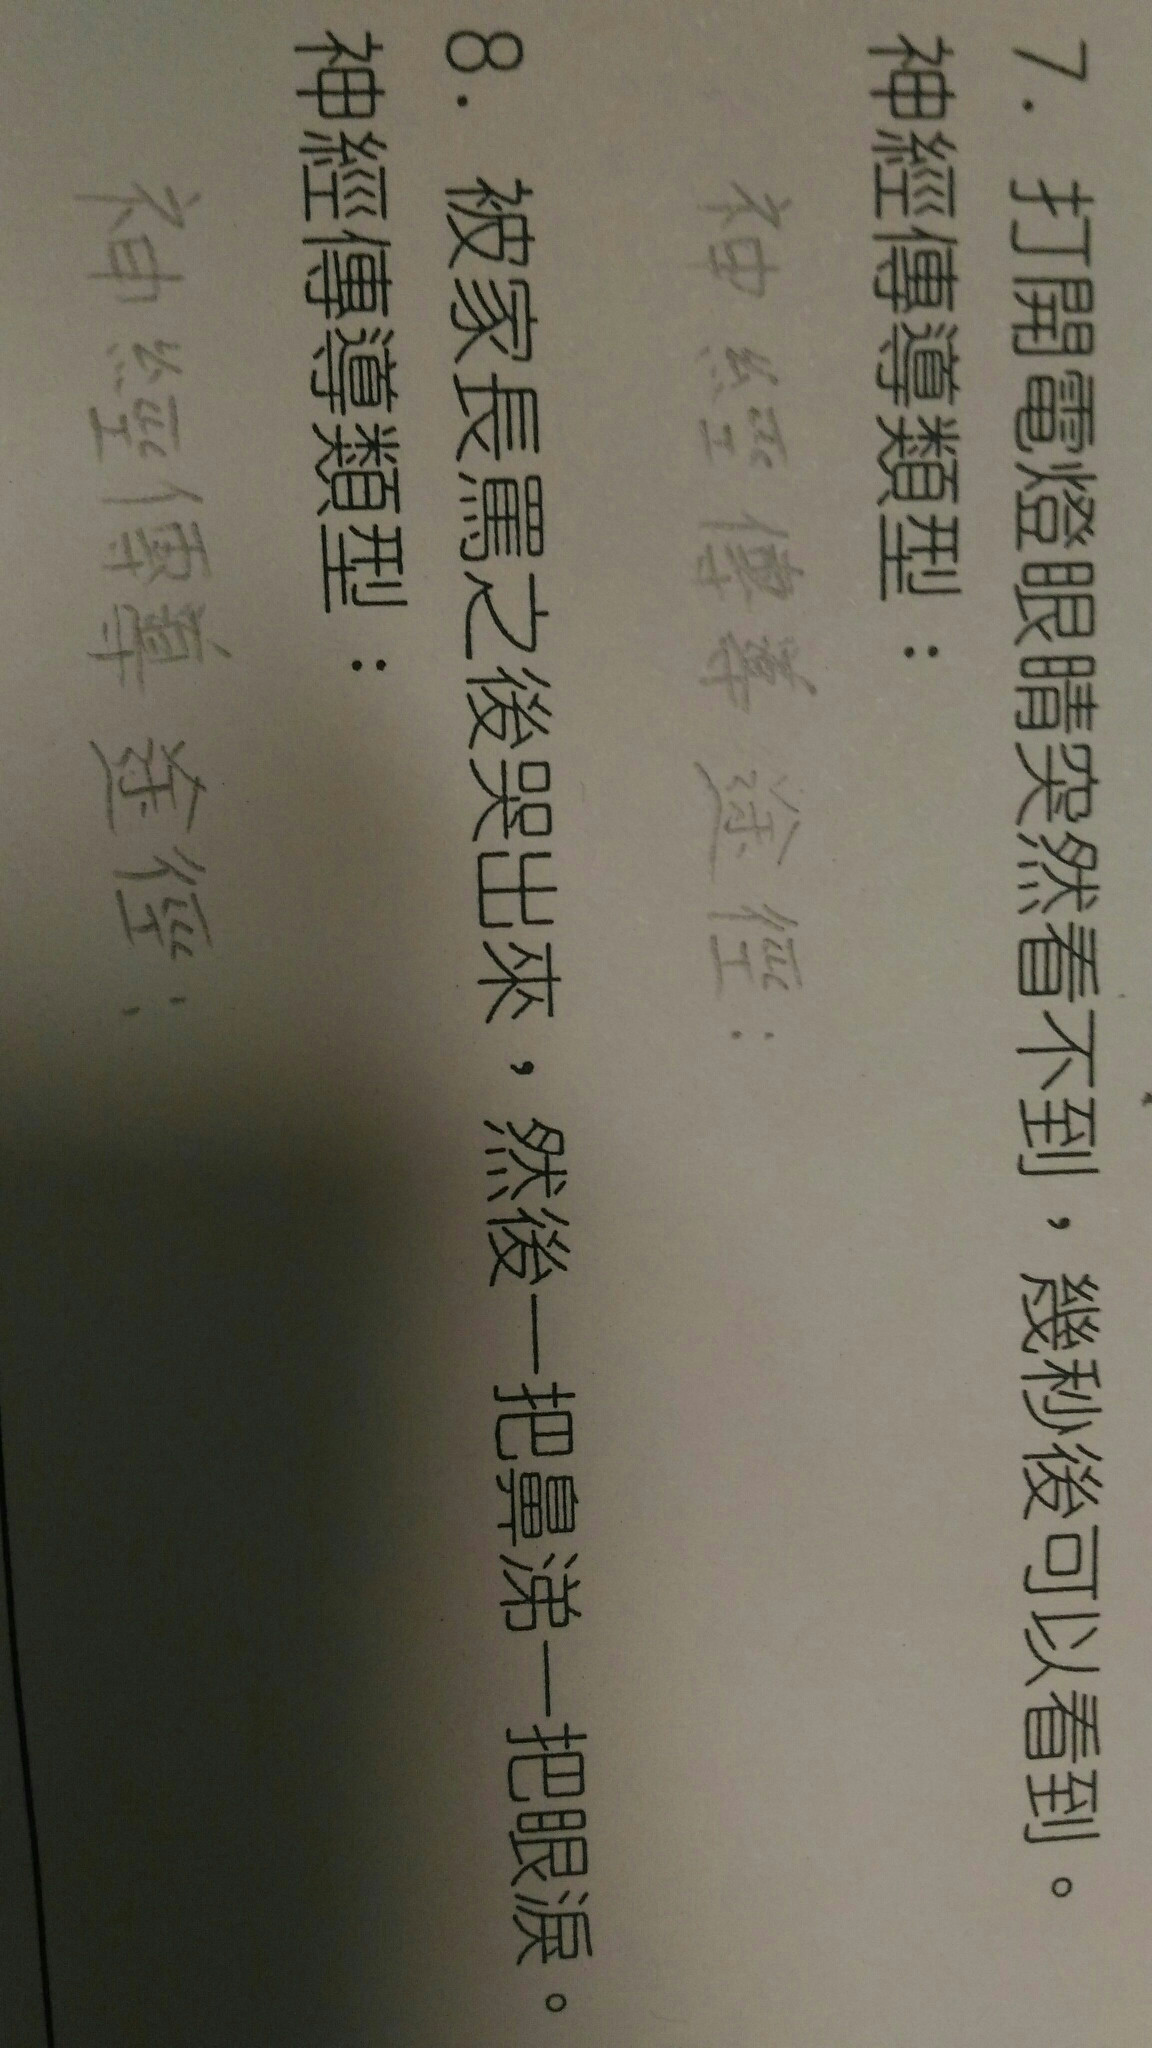 7. 打開電燈眼睛突然看不到，幾秒後可以看到。
神經傳導類型：
神經傳導途徑：
8. 被家長罵之後哭出來，然後一把鼻涕一把眼淚。
神經傳導類型：
神經傳導途徑：